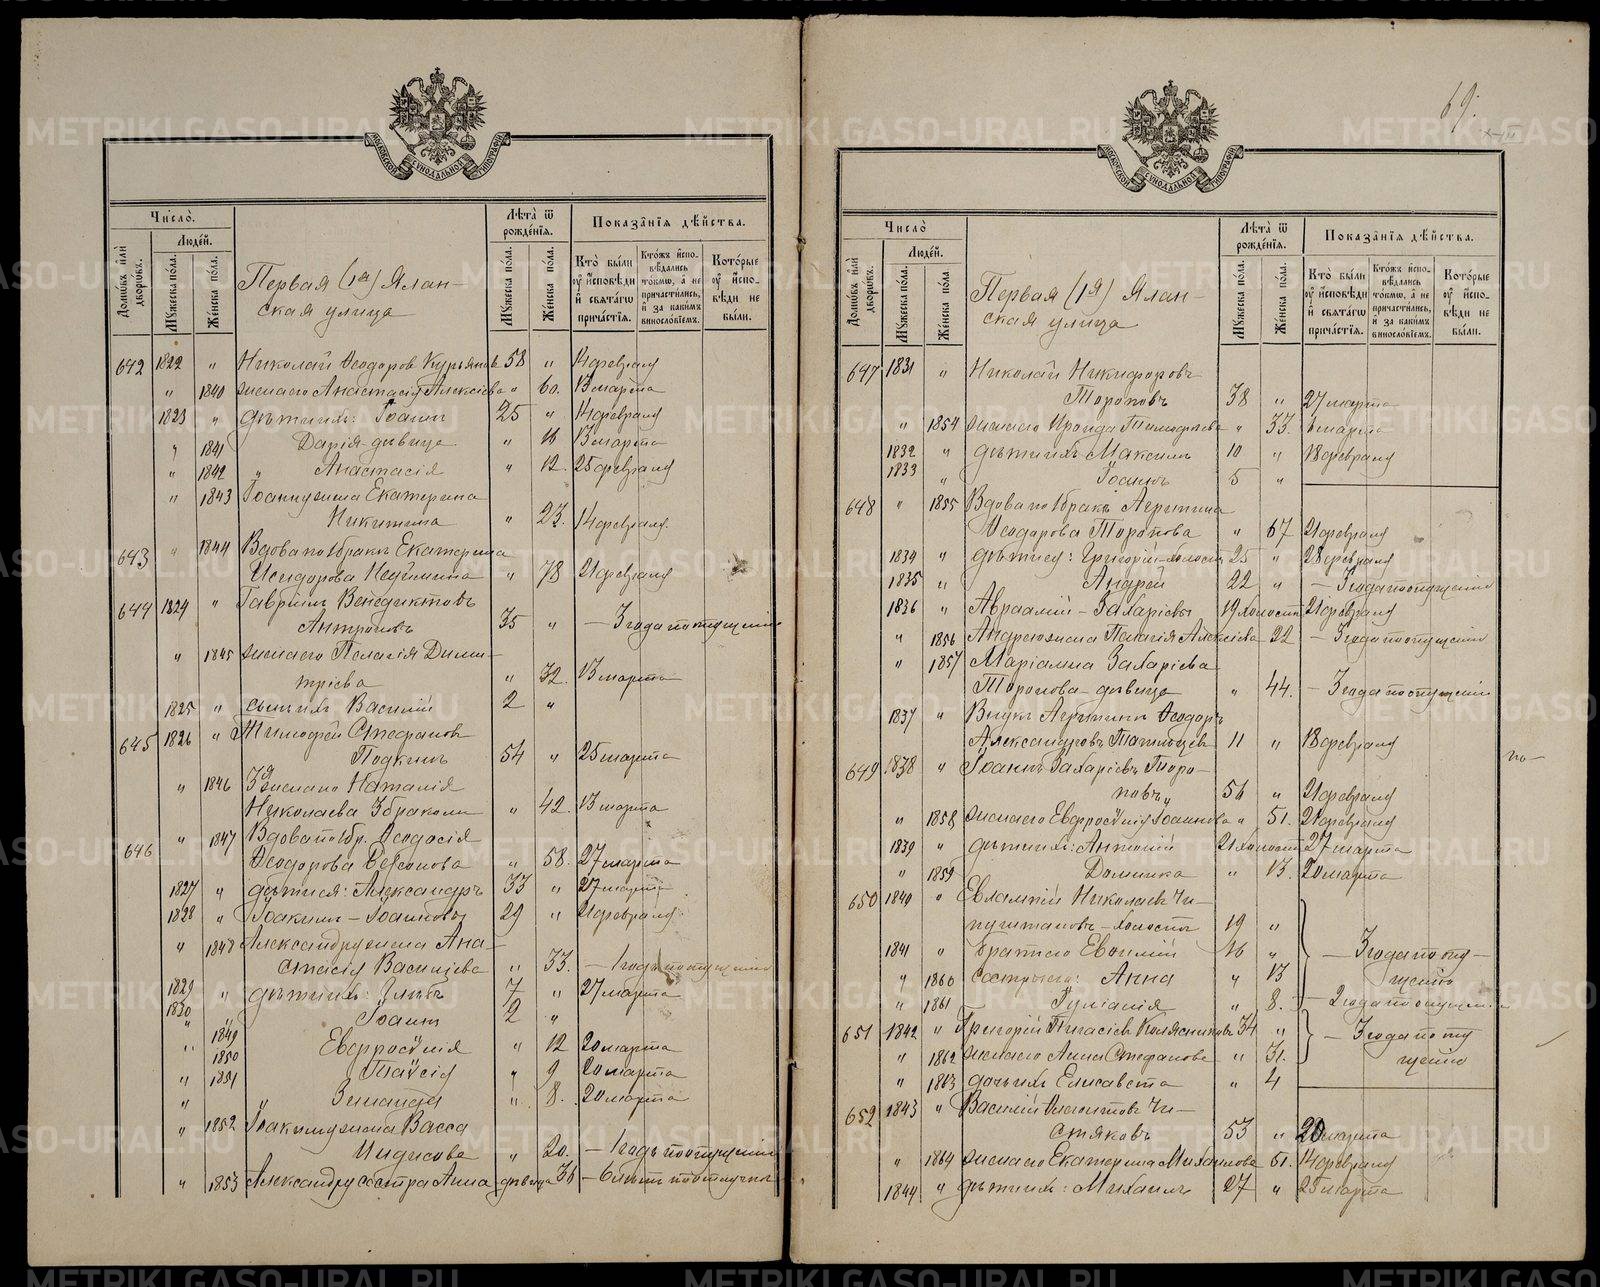 МОСКОВСКОЙ СѴНОДАЛЬНОЙ ТИПОГРАФІИ
Число̀.
Домѡвъ и҆лѝ дворѡвъ.
Люде́й.
Мꙋжеска по́ла.
Же́нска по́ла.
Первая (1я) Ялан-
ская улица
Лѣта̀ ѿ рожде́нїѧ.
Мꙋжеска по́ла.
Же́нска по́ла.
Показа̑нїѧ дѣ́йства.
Кто̀ бы́ли ᲂу҆ и҆́сповѣди и҆ свѧта́гѡ прича́стїѧ.
Кто́жъ и҆спо-вѣ́дались то́кмѡ, а҆ не причасти́лись, и҆ за каки́мъ винослові́емъ.
Кото́рые ᲂу҆ и҆спо-вѣди не бы́ли.
642 1822 " Николай Ѳеодоров Курьянов 58 " 14 февраля
" 1840 жена его Анастасія Алексіева " 60. 13 марта
1823 " дѣти ихъ: Іоаннъ 25 " 14 февраля
" 1841 Дарія девица " 16 13 марта
" 1842 " Анастасія " 12. 25 февраля
" 1843 Іоанну жена Екатерина
Никитина " 23. 14 февраля.
643 " 1844 Вдова по 1 бракѣ Екатерина
Исидорова " 78 21 февраля
644 1824 " Гавріилъ Венедиктовъ
Антроповъ 35 " — 3 года по опущенію
" 1845 жена его Пелагія Дими-
тріева " 32. 13 марта
1825 " сынъ ихъ Василій 2 "
645 1826 " Тимофей Стефанов
54 " 25 марта
" 1846 жена его Наталія
Николаева 3 брака " 42. 13 марта
646 " 1847 Вдова по 1 бр. Ѳеодосія
Ѳеодорова " 58. 27 марта
1827 " дѣти ея: Александръ 33 " 27 марта
1828 " Іоакимъ — 29 " 21 февраля
" 1848 Александру жена Ана-
стасія Василіева " 33. — 1 годъ по опущенію
1829 " дѣти ихъ: Глѣбъ 7 " 27 марта
1830 " Іоаннъ 2 "
" 1849 Евфросѵнія " 12 20 марта
" 1850 Таисія " 9 20 марта
" 1851 " Зинаида " 8. 20 марта
" 1852 Іоакиму жена Васса
" 20. — 1 годъ по опущенію
" 1853 Александру сестра Анна девица 36 — 6 лѣтъ по отлучкѣ
69.
МОСКОВСКОЙ СѴНОДАЛЬНОЙ ТИПОГРАФІИ
Число̀
Домѡвъ и҆лѝ дворѡвъ.
Люде́й.
Мꙋжеска по́ла.
Же́нска по́ла.
Первая (1я) Ялан-
ская улица
Лѣта̀ ѿ рожде́нїѧ.
Мꙋжеска по́ла.
Же́нска по́ла.
Показа̑нїѧ дѣ́йства.
Кто̀ бы́ли ᲂу҆ и҆́сповѣди и҆ свѧта́гѡ прича́стїѧ.
Кто́жъ и҆спо-вѣ́дались то́кмѡ, а҆ не причасти́лись, и҆ за каки́мъ винослові́емъ.
Кото́рые ᲂу҆ и҆спо-вѣди не бы́ли.
647 1831 " Николай Никифоровъ
Тороповъ 38 " 27 марта
" 1854 жена его Ироида Тимофеева " 33. 6 марта
1832 " дѣти ихъ Максимъ 10 " 18 февраля
1833 " Іоаннъ 5 "
648 " 1855 Вдова по 1 бракѣ Агрипина
Ѳеодорова Торопова " 67 21 февраля
1834 " дѣти ея: Григорій — холостъ 25 " 28 февраля
1835 " Андрей 22 " — 3 года по опущенію
1836 " Авраамій — Захаріевъ 19 холостъ 21 февраля
" 1856 Андрею жена Пелагія Алексіева " 22 — 3 года по опущенію
" 1857 Маріамна Захаріева
Торопова — девица " 44. — 3 года по опущенію
1837 " Внукъ Агрипины Ѳеодоръ
Александровъ 11 " 18 февраля
649 1838 " Іоаннъ Захаріевъ Торо-
повъ 56 " 21 февраля
" 1858 жена его Евфросѵнія Іоаннова " 51. 21 февраля
1839 " дѣти ихъ: Антоній 21 холостъ 27 марта
" 1859 Домника " 13. 20 марта
650 1840 " Евлампій Николаевъ Чи-
— холостъ 19 "
1841 " братъ его Евѳимій 16 " — 3 года по опу-
" 1860 сестры его: Анна " 13 щенію
" 1861 Іуліанія " 8. — 2 года по опущенію
651 1842 " Григорій Пигасіевъ Колясниковъ 34 " — 3 года по опу-
" 1862 жена его Анна Стефанова " 31. щенію
" 1863 дочь ихъ Елисавета " 4
652 1843 " Василій Чи-
стяковъ 53 " 20 марта
" 1864 жена его Екатерина Михаилова " 51. 14 февраля
1844 " дѣти ихъ: Михаилъ 27 " 25 марта
METRIKI.GASO-URAL.RU